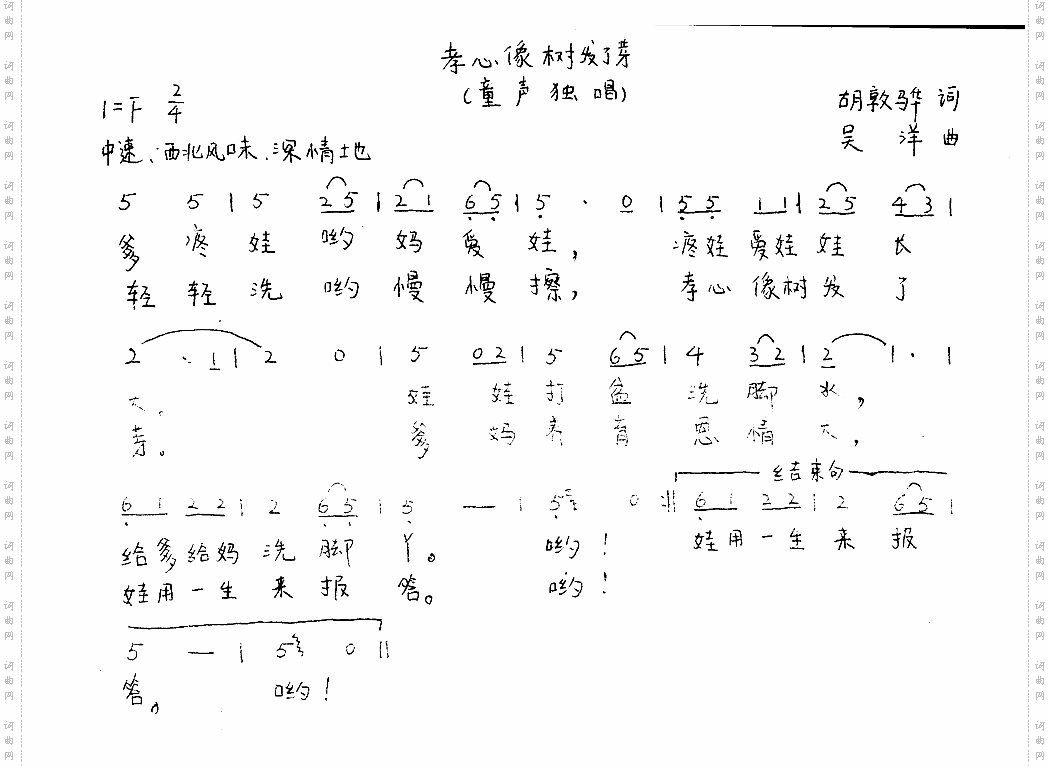 孝心像树发了芽
(童声独唱)
1=F 2/4
胡敦骅 词
中速、西北风味、深情地
吴洋 曲
5 5 | 5 25 | 21 65 | 5 · 0 | 55 11 | 25 43 |
爹疼娃哟妈爱娃，疼娃爱娃娃长
轻轻洗哟慢慢擦，孝心像树发了
2 · 1 | 2 0 | 5 02 | 5 65 | 4 32 | 2 1 · |
大。娃娃打盆洗脚水，
芽。爹妈养育恩情大，
结束句
61 22 | 2 65 | 5 — | 5 0 :|| 61 22 | 2 65 |
给爹给妈洗脚丫。哟！娃用一生来报
娃用一生来报答。哟！
5 — | 5 0 ||
答。哟！
词曲网